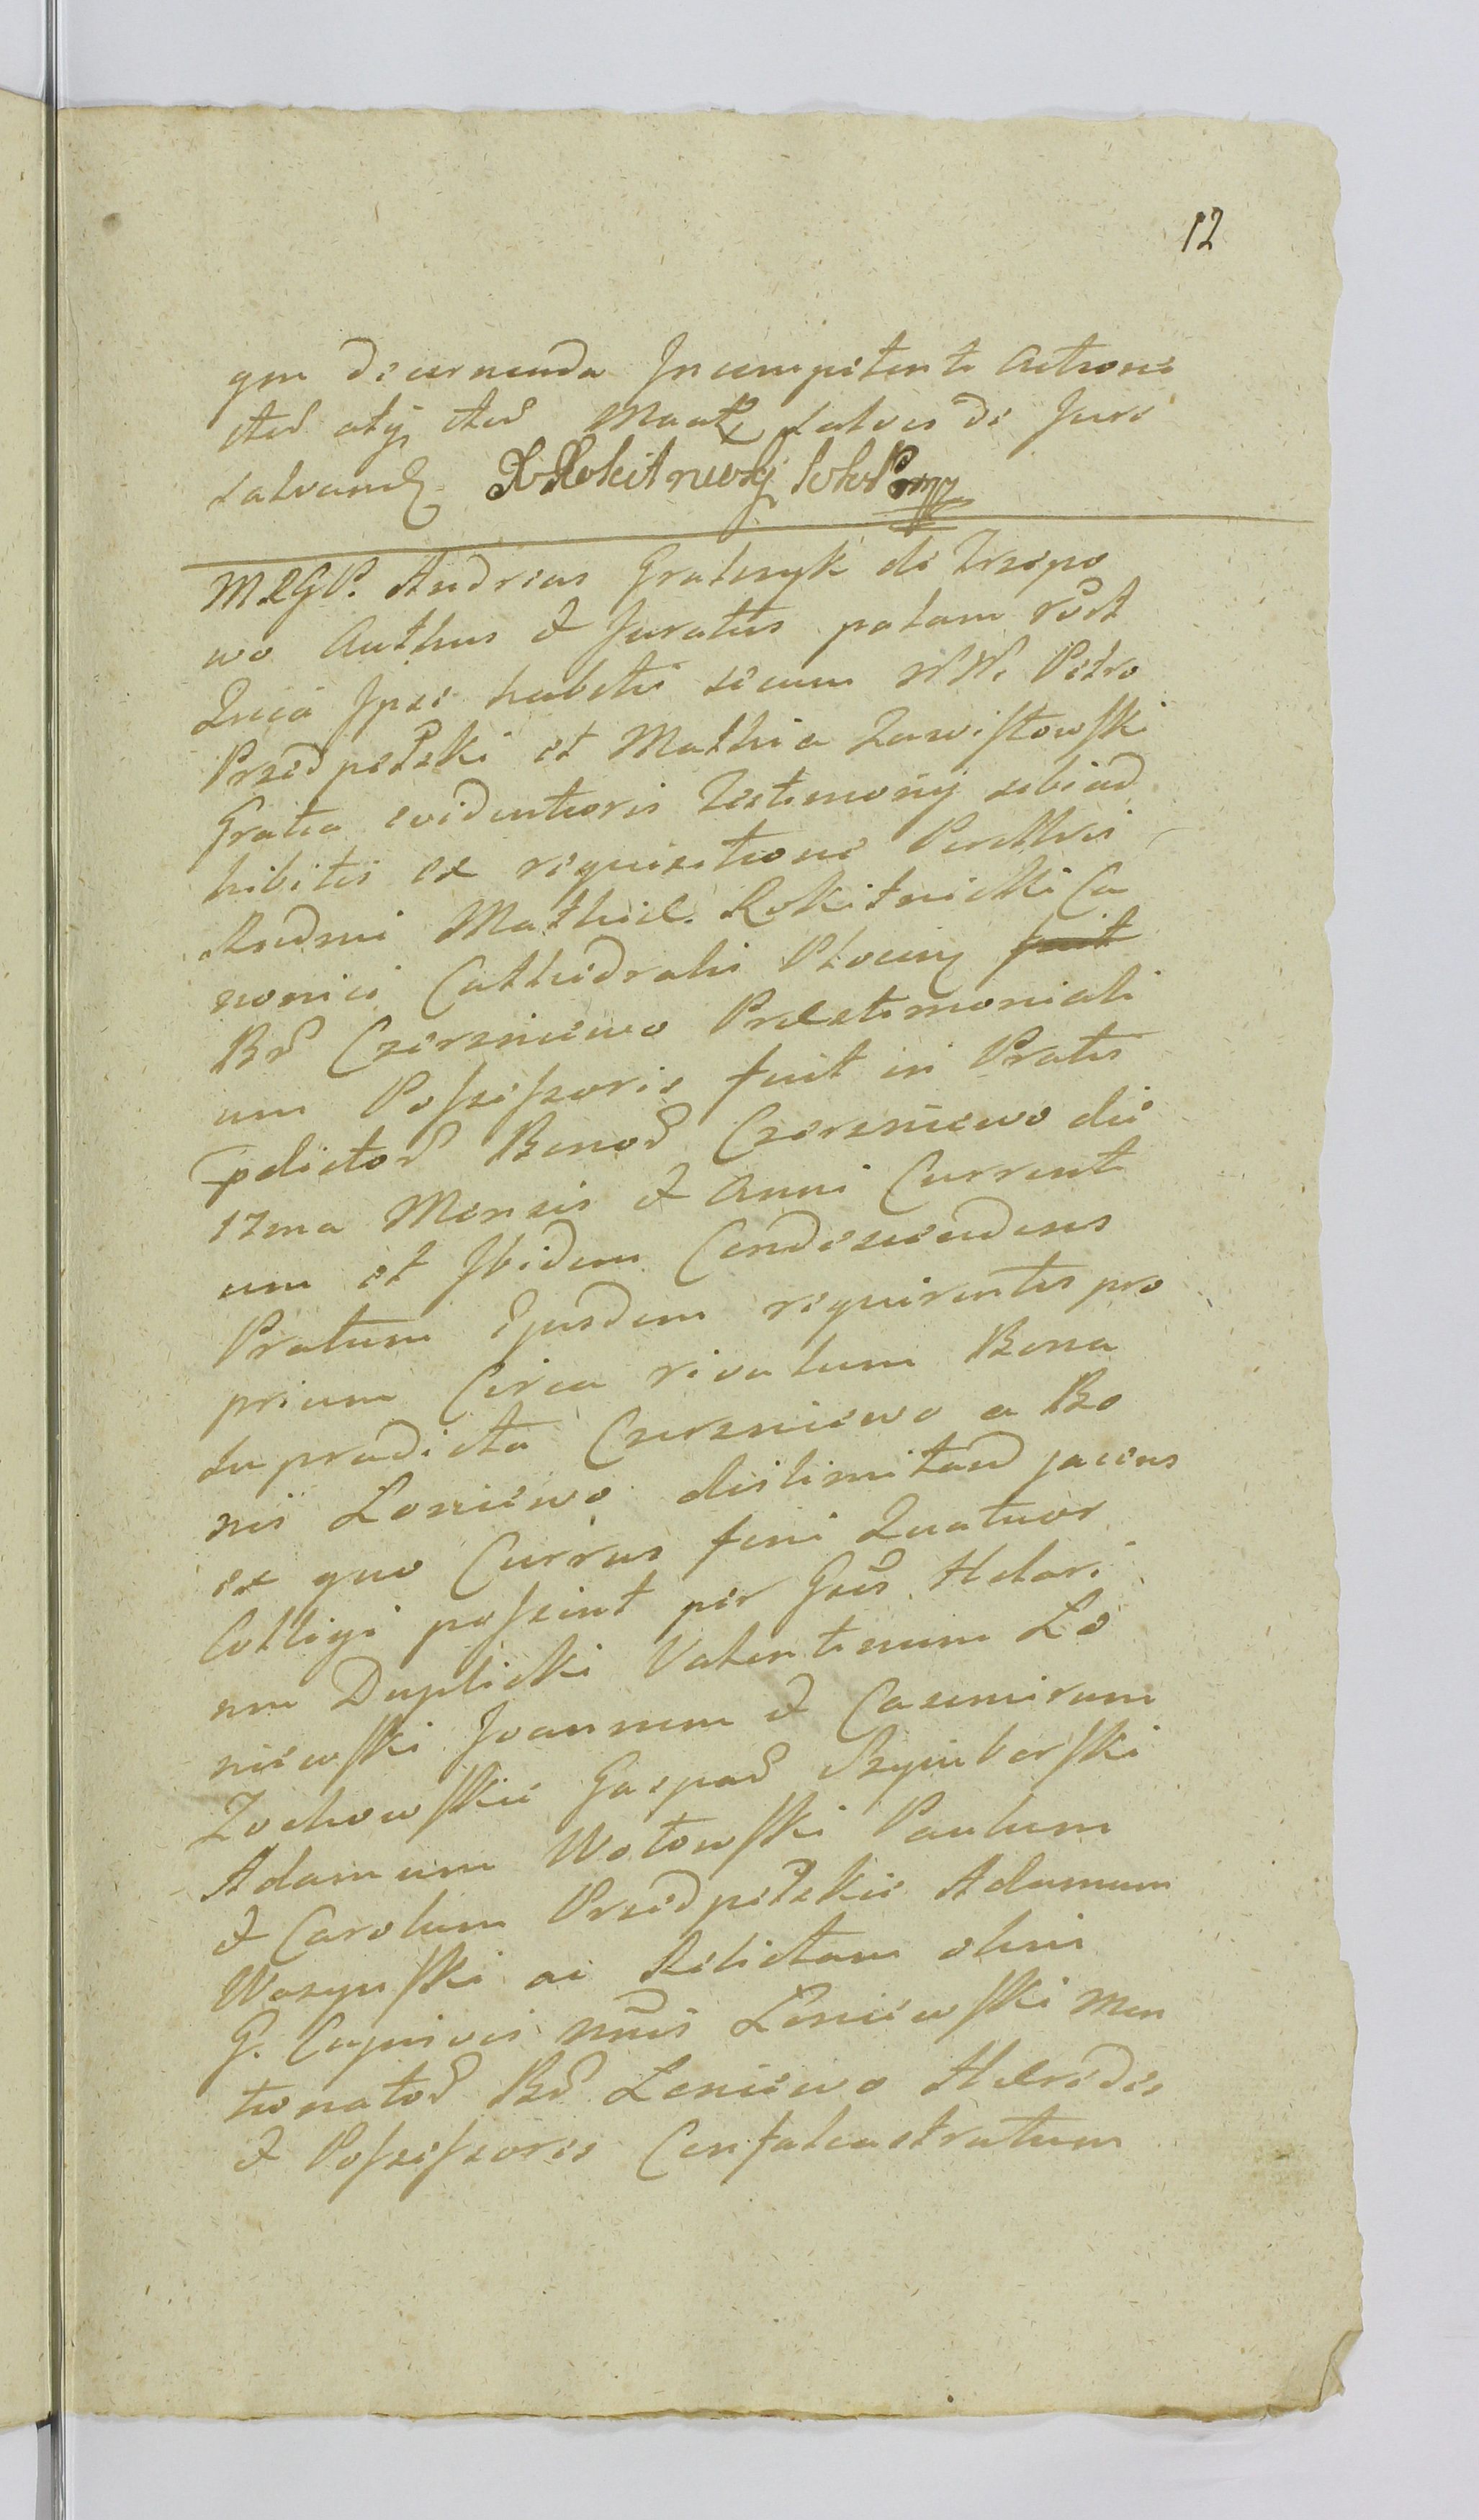 12
qm decernenda Incumpetenti Actione
ated atijs ated Maatz salvis de Jure
salvand
MRGP. Andreas Gralczyk de Trzepo
wo Authus & Juratus palam rett
Quia Ipse habitis secum NN. Petro
Przedpełski et Mathia Zawistowski
Gratia evidentioris Testimonij sibi ad
hibitis ex requisitione Perillris
Rndmi Mathie Rokitnicki Ca
nonici Cathedralis Plocens fuit
Bd Czerzniewo Prestimoniali
um Possessoris fuit in Pratis
pdictod Bonod Czerzniewo die
17ma Mensis & Anni Current
um et Ibidem Condescendens
Pratum Ejusdem requirentis pro
prium Circa rivulum Bona
supradicta Czerzniewo a Bo
nis Loniewo dislimitand jacens
ex quo Currus feni Quatuor
Colligi possint per Gsos Hilari
um Duplicki Valentinum Lo
niewski Joannem & Casimirum
Zochowskie Gaspad Szymborski
Adamum Wołowski Paulum
& Carolum Przedpełskie Adamum
Wozynski ac Relictam olim
G. Cujusvis nnis Loniewski men
tionatod Bd Loniewo Heredes
& Possessores Confalcastratum